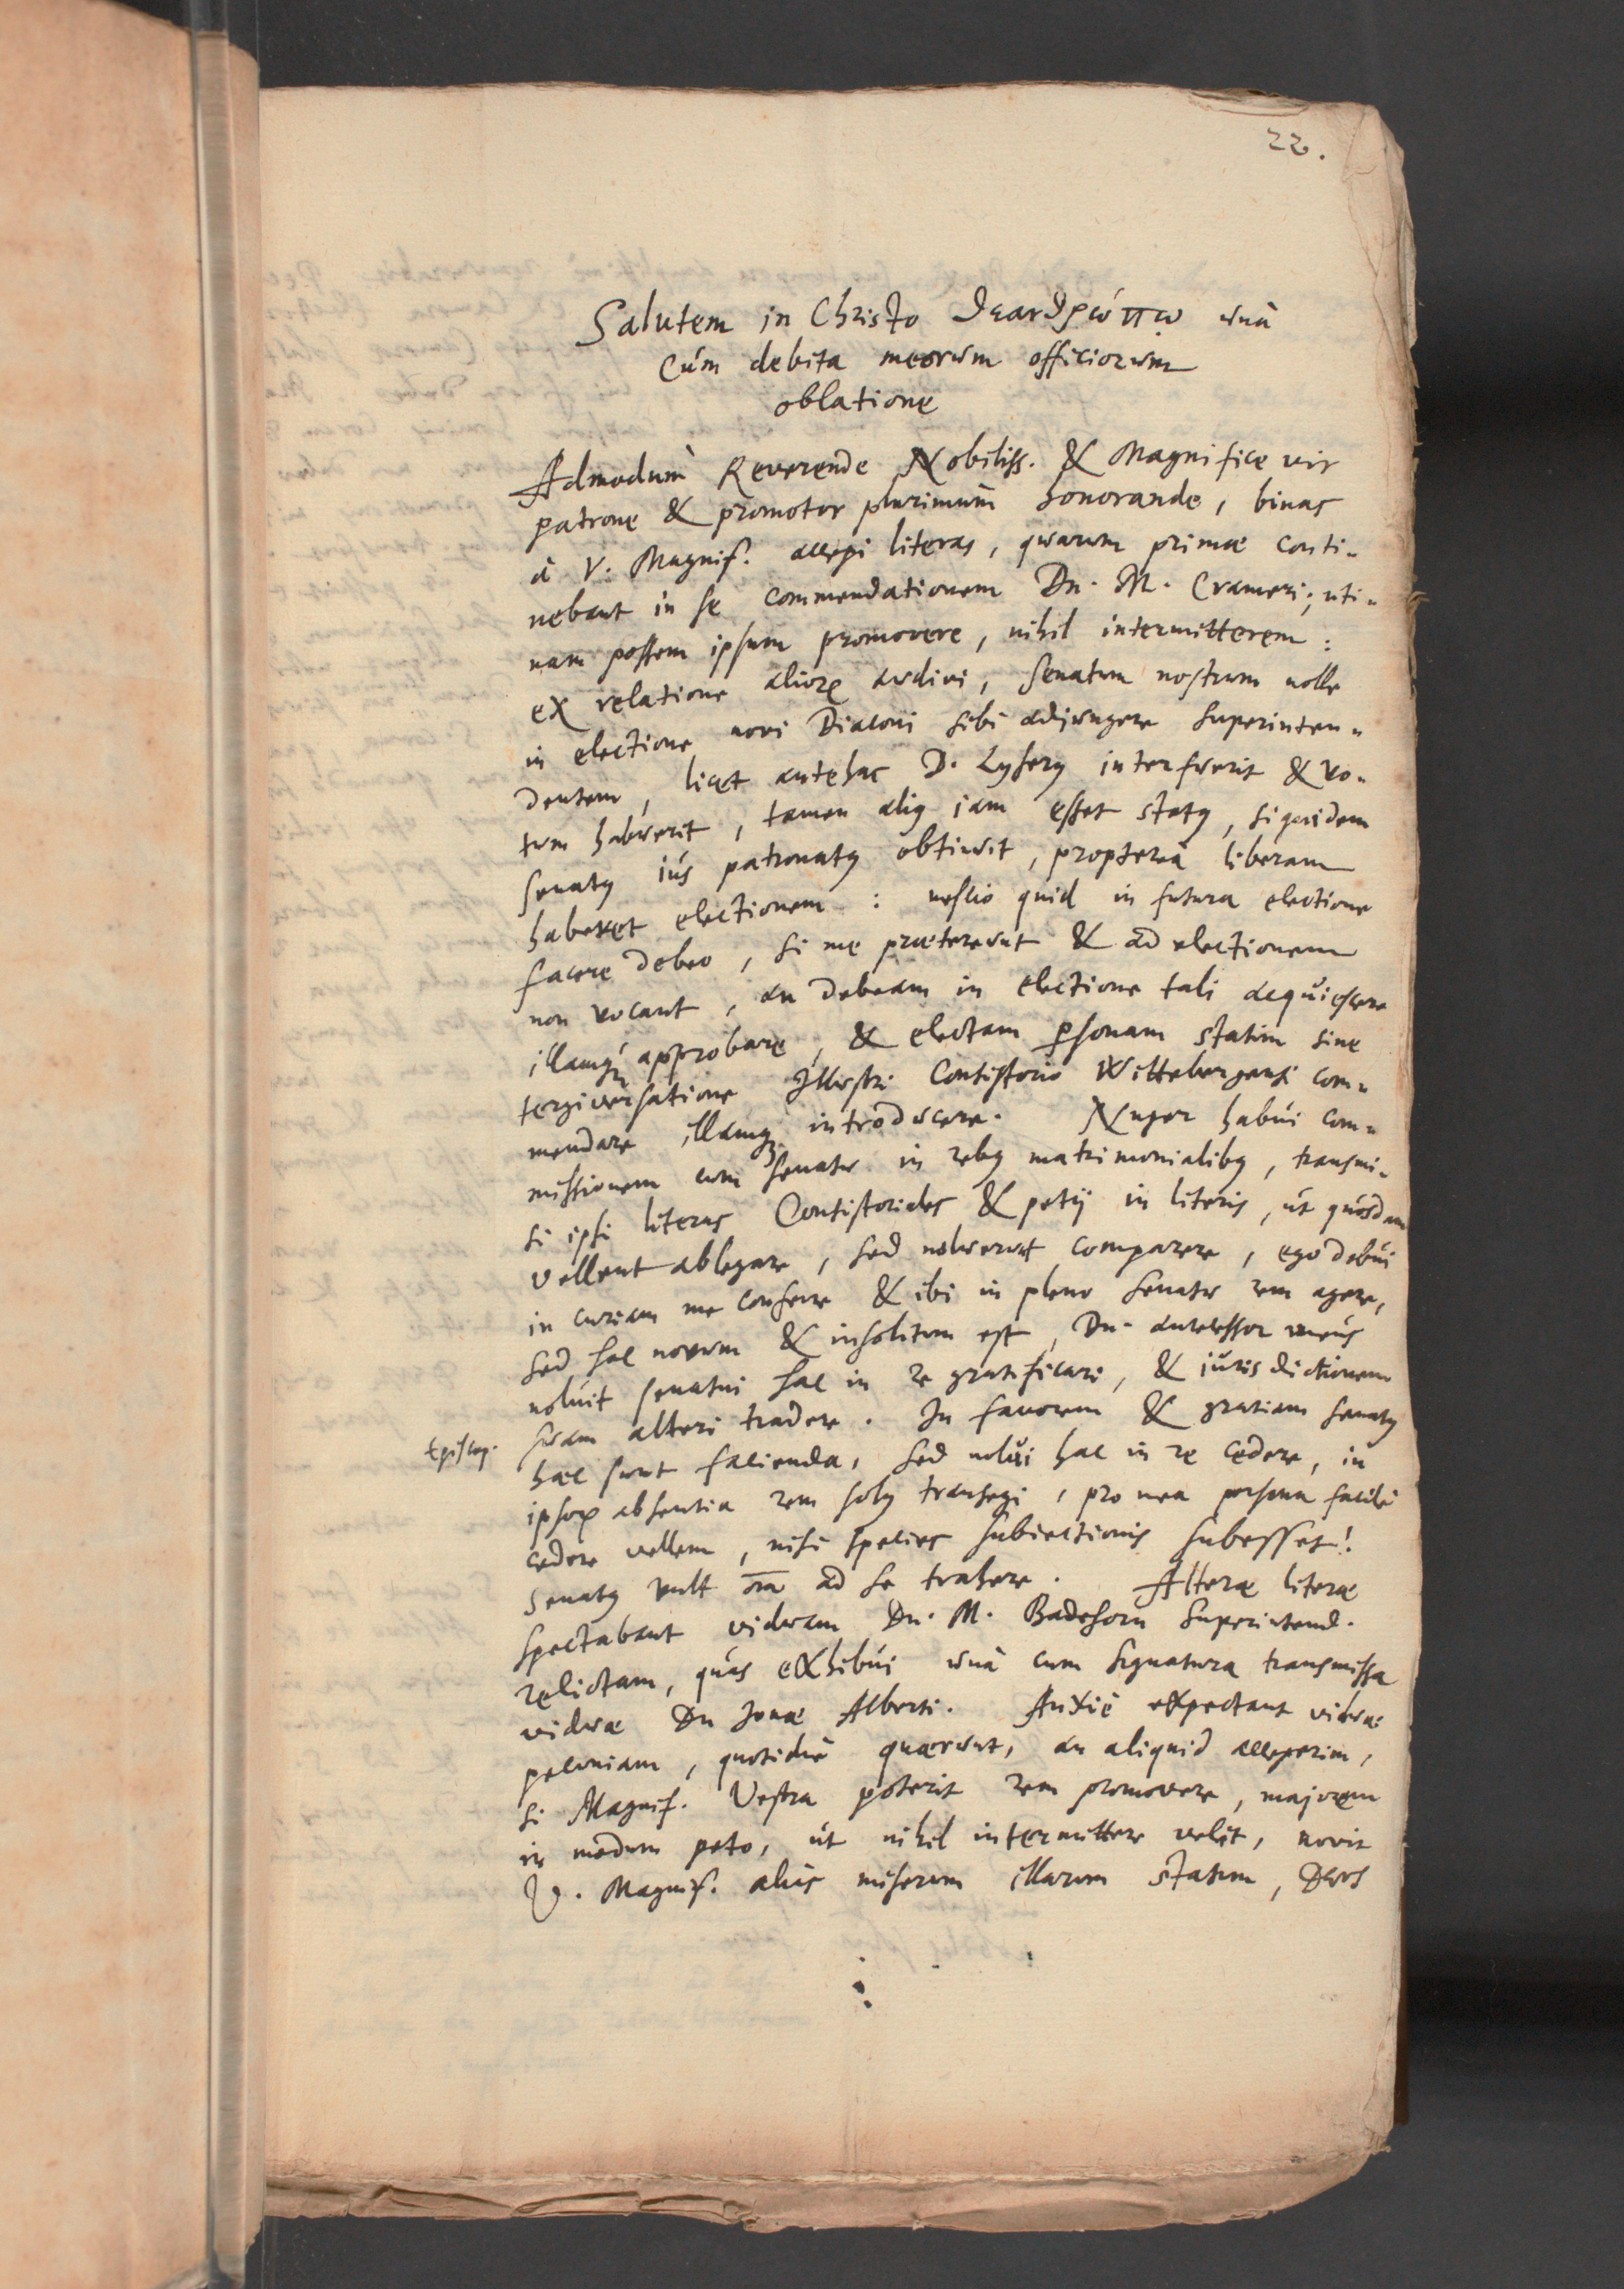 22.
Salutem in Christo θεανθρώπῳ unà
cúm debita meorum officiorum
oblatione
Admodum Reverende Nobiliss. & Magnifice vir
patrone & promotor plurimum honorande, binas
à V. Magnif. accepi literas, quarum primæ conti-
nebant in se commendationem Dn. M. Crameri; uti-
nam possem ipsum promovere, nihil intermitterem:
ex relatione alioꝝ audivi, senatum nostrum nolle
in electione novi Diaconi sibi adjungere superinten-
dentem, licet antehac D. Lyserꝰ interfuerit & vo-
tum habuerit, tamen aliꝰ iam esset statꝰ, siquidem
senatꝰ iús patronatꝰ obtinuit, proptereà liberam
haberet electionem: nescio quid in futura electione
facere debeo, si me prætereunt & ad electionem
non vocant, an debeam in electione tali acquiescere
illamqꝫ approbare, & electam ꝑsonam statim sine
tergiversatione Illustri Consistorio Wittebergensi com-
mendare illamqꝫ introducere. Nuper habúi com-
missionem cum senatu in rebꝰ matrimonialibꝰ, transmi-
si ipsi literas Consistoriales & petij in literis, út quosdam
vellent ablegare, sed noluerunt comparere, ego debúi
in curiam me conferre & ibi in pleno senatu rem agere,
sed hoc novum & insolitum est, Dn. antecessor meús
nolúit senatui hac in re gratificari, & iúrisdictionem
Episcop.
suam alteri tradere. In favorem & gratiam senatꝰ
hæc sunt facienda, sed nolúi hac in re cedere, in
ipsoꝝ absentia rem solꝰ transegi, pro mea persona facilè
cedere vellem, nisi species subiectionis subesset!
Senatꝰ vult oĩa ad se trahere. Alteræ literæ
spectabant viduam Dn. M. Badehorn Superintend.
relictam, quas exhibúi unà cum signatura transmissa
viduæ Dn Jonæ Alberti. Anxiè expectant viduæ
pecuniam, quotidiè quærunt, an aliquid acceperim,
si Magnif. Vestra poterit rem promovere, majorem
in modum peto, út nihil intermittere velit, novit
V. Magnif. aliàs miserum illarum statum, Deus